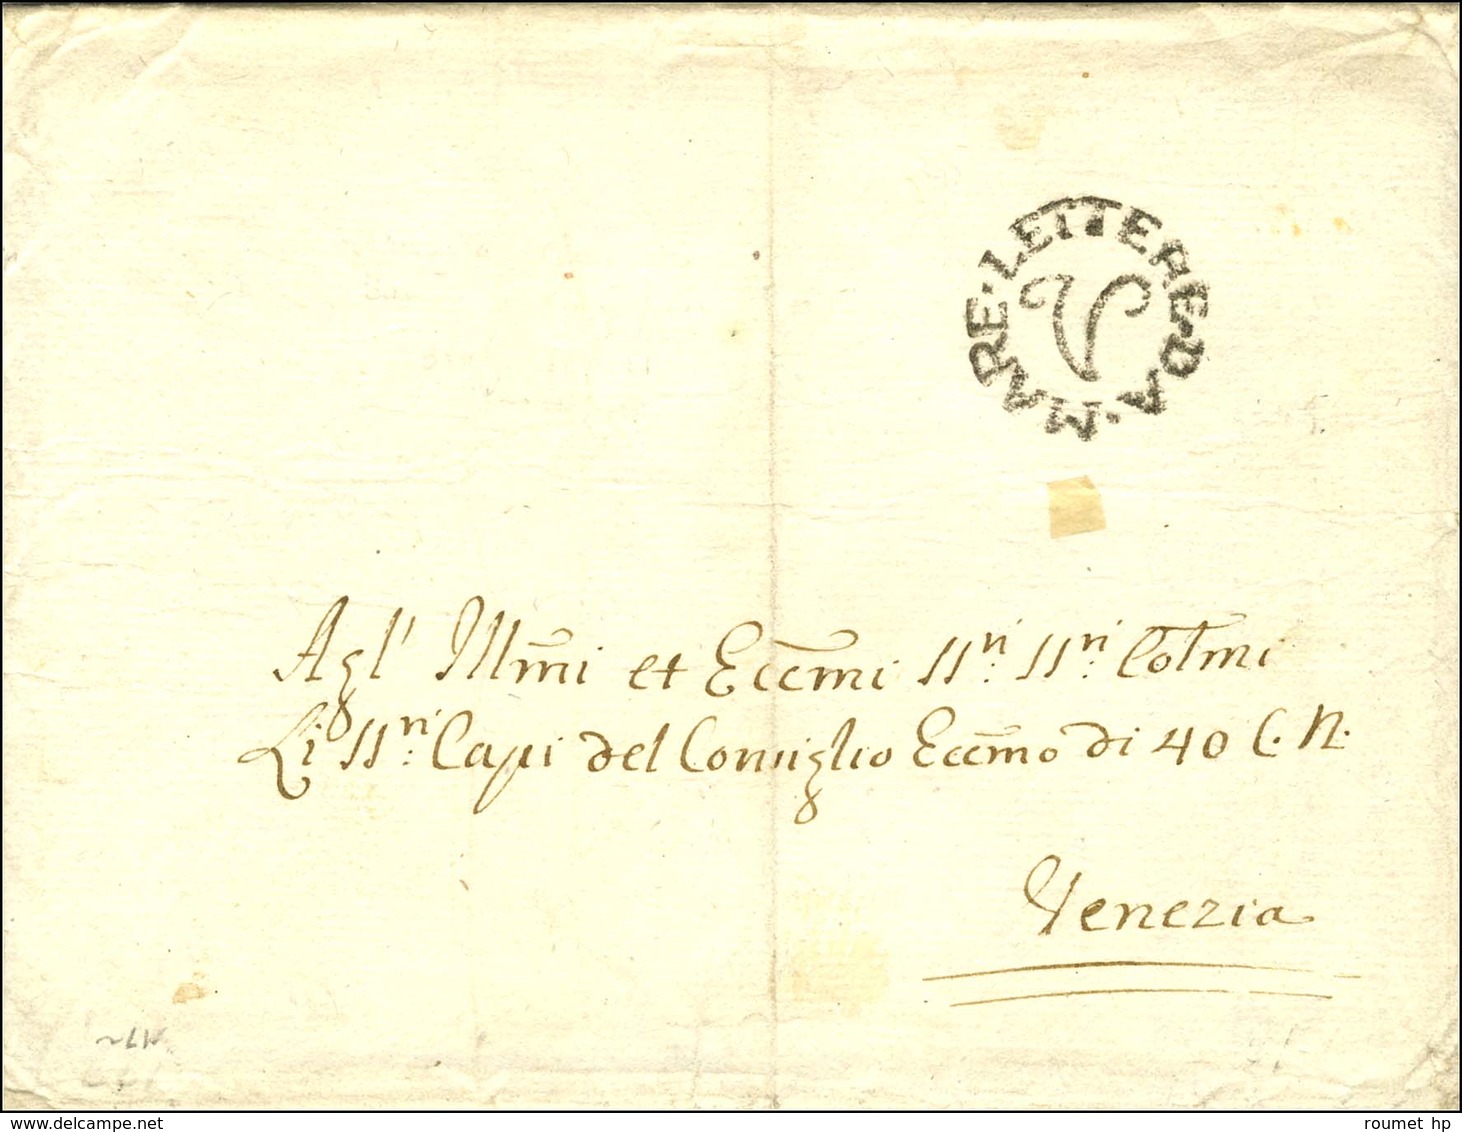 LETTERE·DA·MARE·
V
Agl' Illmi et Eccmi SSri: SSri: Colmi
Li SSri: Capi del Consiglio Eccmo di 40 C. N.
Venezia
delcampe.net
roumet hp